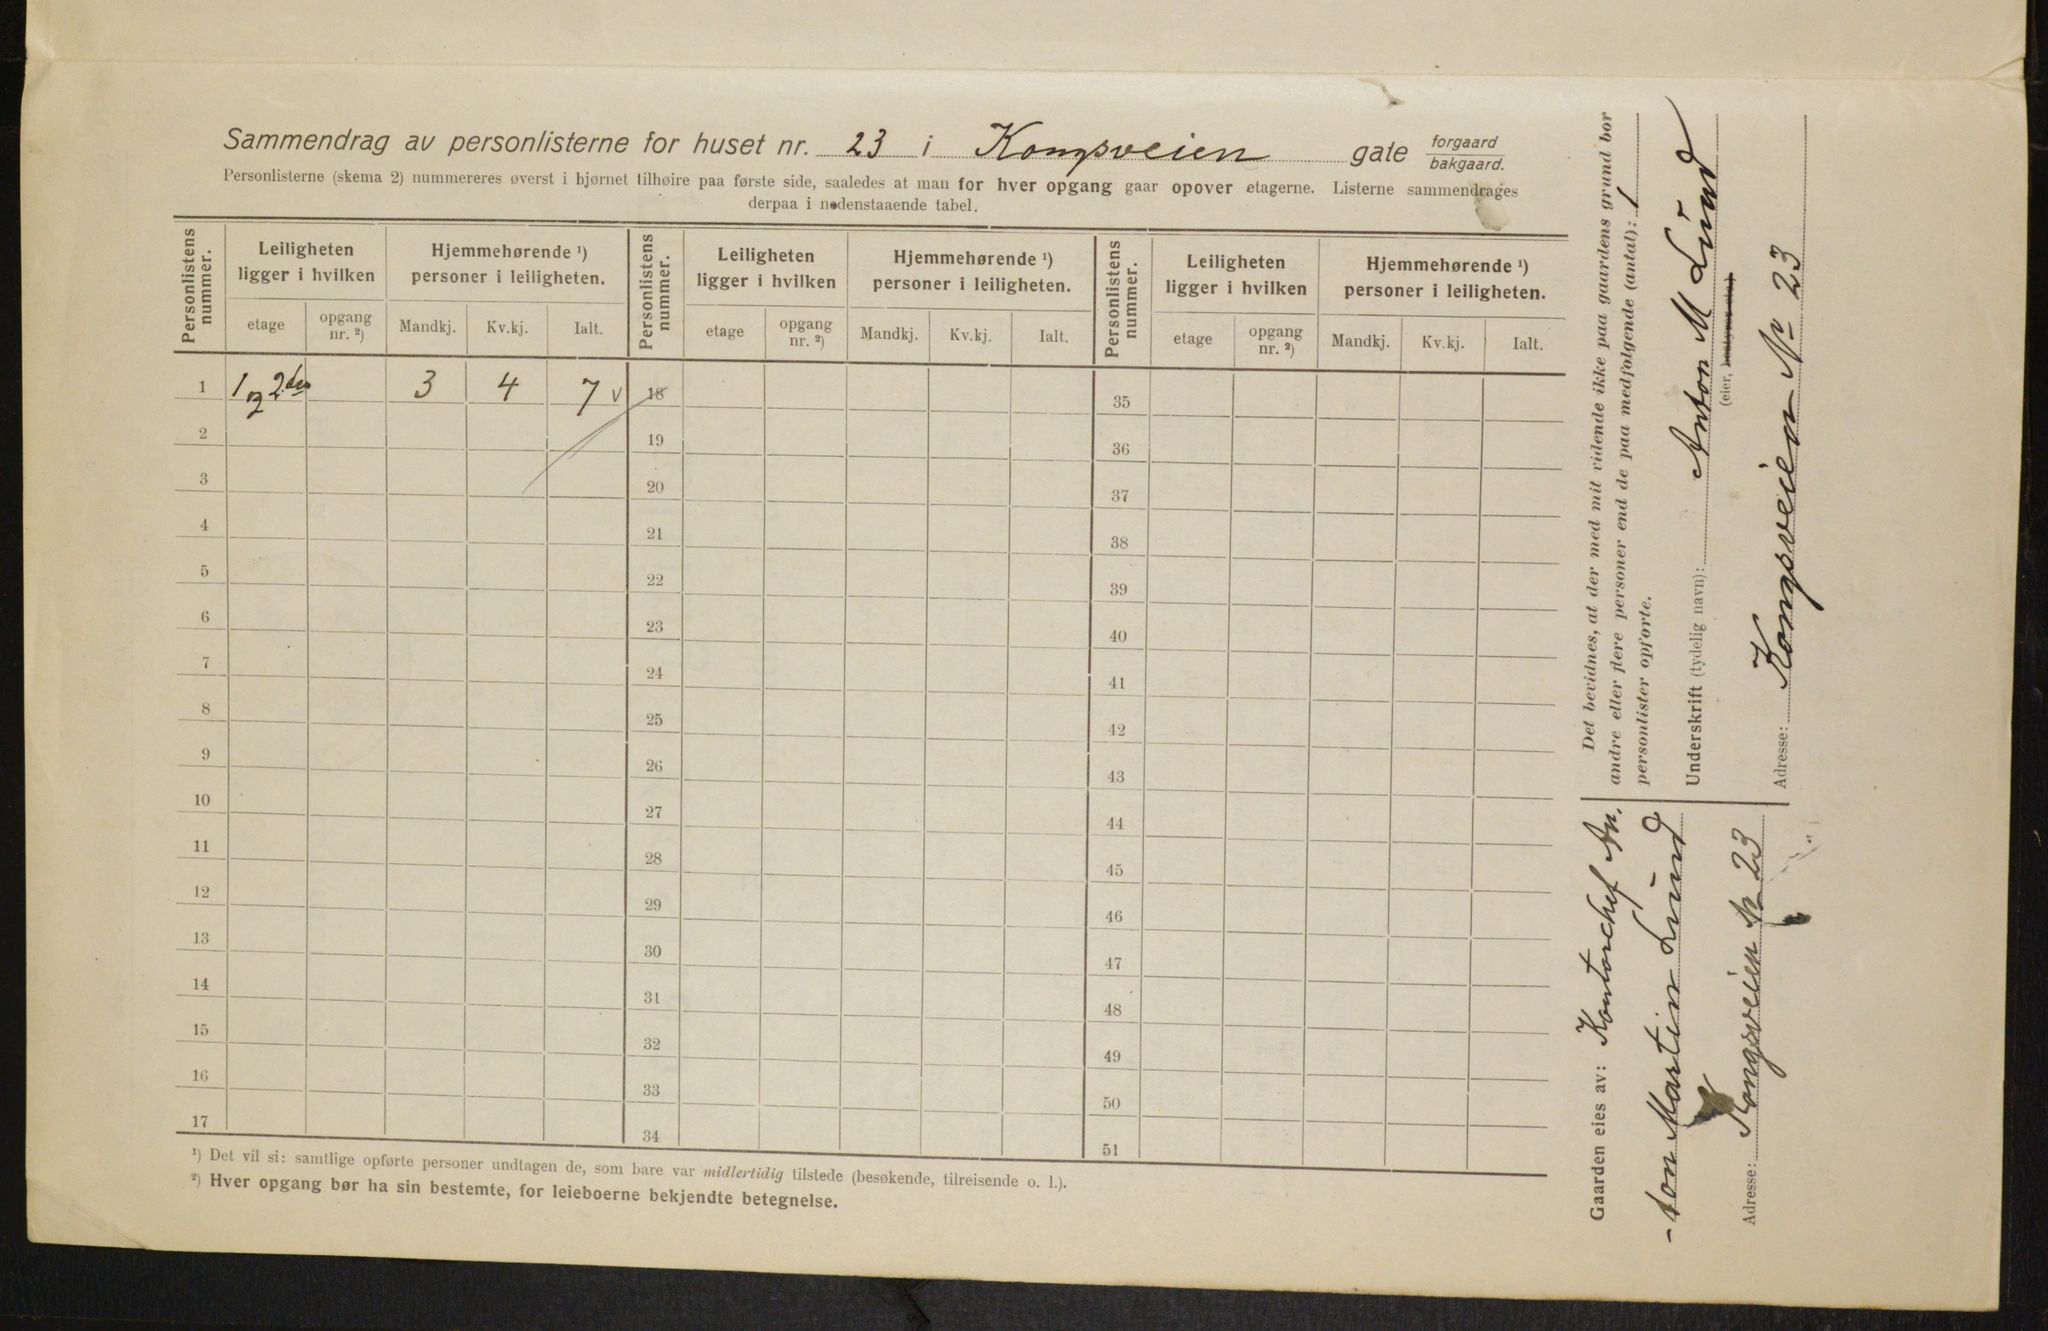 Sammendrag av personlisterne for huset nr. 23 i Kongsveien gate forgaard/bakgaard.
Personlisterne (skema 2) nummereres øverst i hjørnet tilhøire paa første side, saaledes at man for hver opgang gaar opover etagerne. Listerne sammendrages
derpaa i nedenstaaende tabel.
Personlistens nummer. Leiligheten ligger i hvilken Hjemmehørende ¹) personer i leiligheten. Personlistens nummer. Leiligheten ligger i hvilken Hjemmehørende ¹) personer i leiligheten. Personlistens nummer. Leiligheten ligger i hvilken Hjemmehørende ¹) personer i leiligheten.
etage opgang nr. ²) Mandkj. Kv.kj. Ialt. etage opgang nr. ²) Mandkj. Kv.kj. Ialt. etage opgang nr. ²) Mandkj. Kv.kj. Ialt.
1 1 og 2den 3 4 7 v 18 35
2 19 36
3 20 37
4 21 38
5 22 39
6 23 40
7 24 41
8 25 42
9 26 43
10 27 44
11 28 45
12 29 46
13 30 47
14 31 48
15 32 49
16 33 50
17 34 51
¹) Det vil si: samtlige opførte personer undtagen de, som bare var midlertidig tilstede (besøkende, tilreisende o. l.).
²) Hver opgang bør ha sin bestemte, for leieboerne bekjendte betegnelse.
Gaarden eies av: Kontorchef An,
-ton Martin Lund
Adresse: Kongsveien № 23
Det bevidnes, at der med mit vidende ikke paa gaardens grund bor
andre eller flere personer end de paa medfølgende (antal): 1
personlister opførte.
Underskrift (tydelig navn): Anton M Lund
(eier, bestyrer etc.)
Adresse: Kongsveien № 23